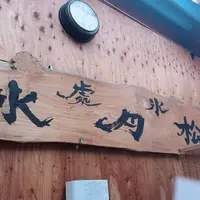 松月氷處氷